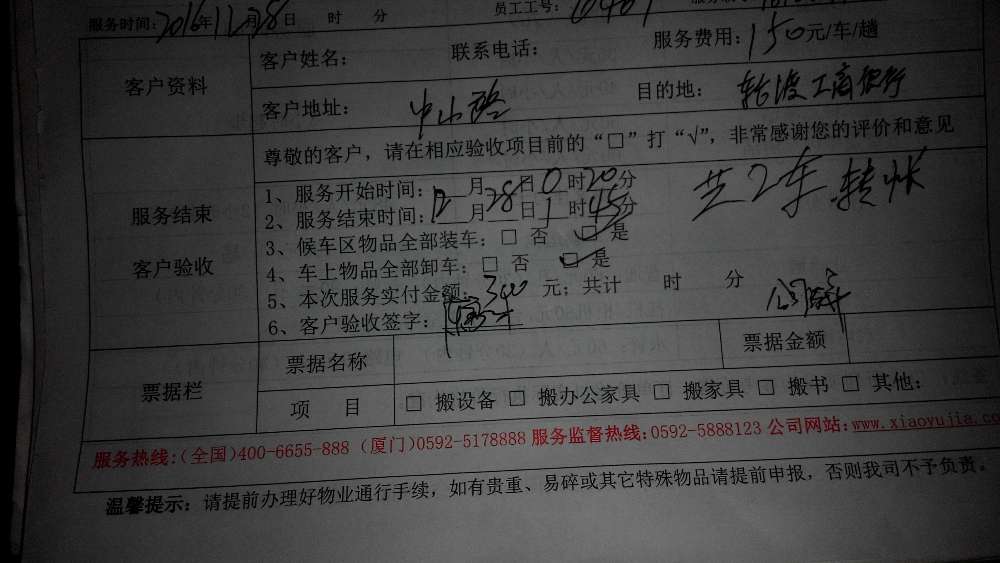 服务时间：2016年12月28日 时 分 员工工号：
客户资料
客户姓名： 联系电话： 服务费用：150元/车/趟
客户地址：中山路 目的地：轮渡工商银行
尊敬的客户，请在相应验收项目前的“□”打“√”，非常感谢您的评价和意见
服务结束
客户验收
1、服务开始时间：12月28日0时20分
2、服务结束时间：12月28日1时45分
共2车 转帐
3、候车区物品全部装车：□ 否 ☑ 是
4、车上物品全部卸车：□ 否 ☑ 是
5、本次服务实付金额：300元；共计 时 分
6、客户验收签字：
票据栏
票据名称 票据金额
项 目 □ 搬设备 □ 搬办公家具 □ 搬家具 □ 搬书 □ 其他：
服务热线：（全国）400-6655-888 （厦门）0592-5178888 服务监督热线：0592-5888123 公司网站：www.xiaoyujia.co
温馨提示：请提前办理好物业通行手续，如有贵重、易碎或其它特殊物品请提前申报，否则我司不予负责。